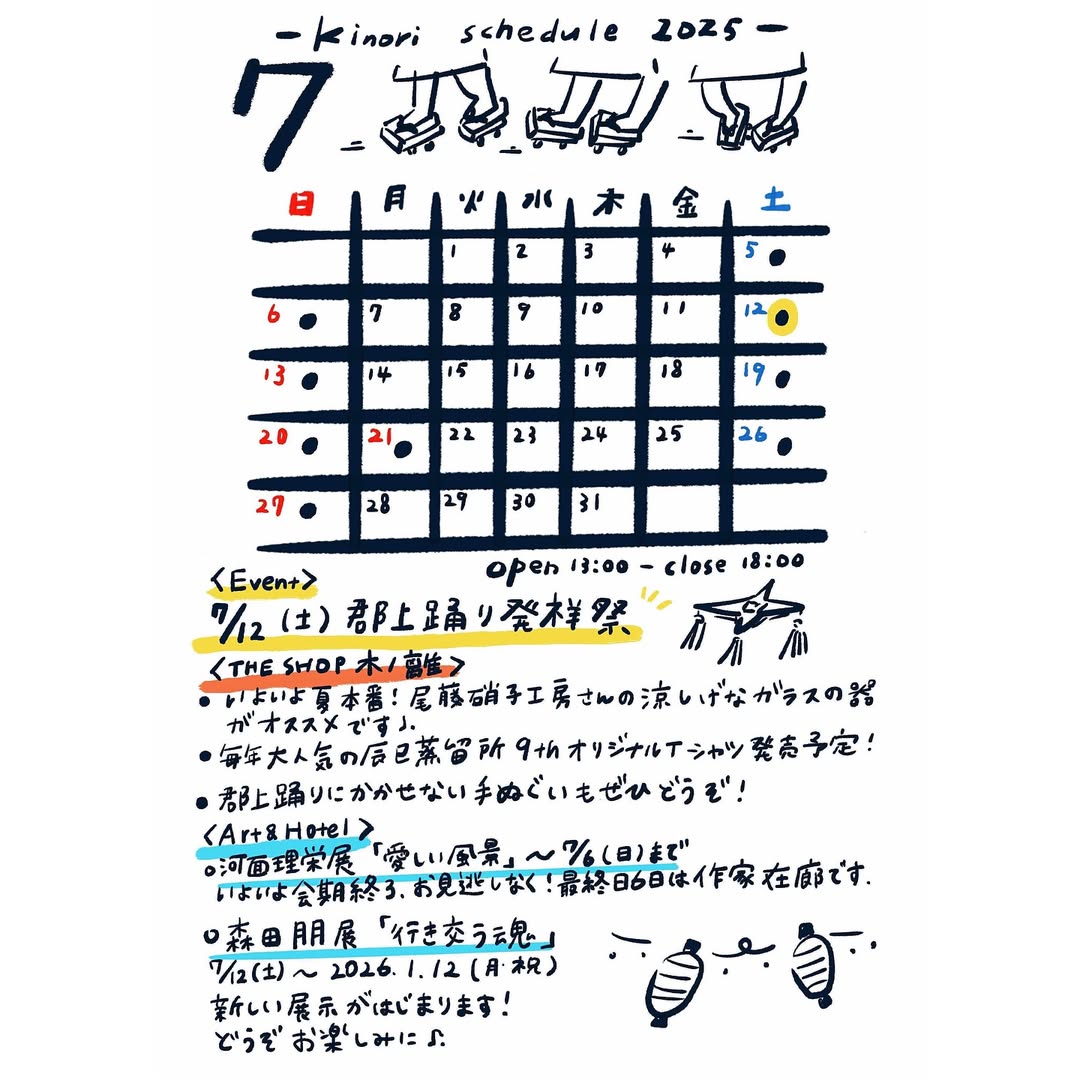 -Kinori schedule 2025-
7
日 月 火 水 木 金 土
1 2 3 4 5
6 7 8 9 10 11 12
13 14 15 16 17 18 19
20 21 22 23 24 25 26
27 28 29 30 31
open 13:00 - close 18:00
<Event>
7/12 (土) 郡上踊り発祥祭
<THE SHOP 木ノ離>
• いよいよ夏本番! 尾藤硝子工房さんの涼しげなガラスの器
がオススメです♪.
• 毎年大人気の辰巳蒸留所 9thオリジナルTシャツ発売予定!
• 郡上踊りにかかせない手ぬぐいもぜひどうぞ!
<Art&Hotel>
○河面理栄展「愛しい風景」〜7/6(日)まで
いよいよ会期終了、お見逃しなく!最終日6日は作家在廊です.
○森田朋展「行き交う魂」
7/12(土)〜2026.1.12(月・祝)
新しい展示がはじまります!
どうぞお楽しみに♪.